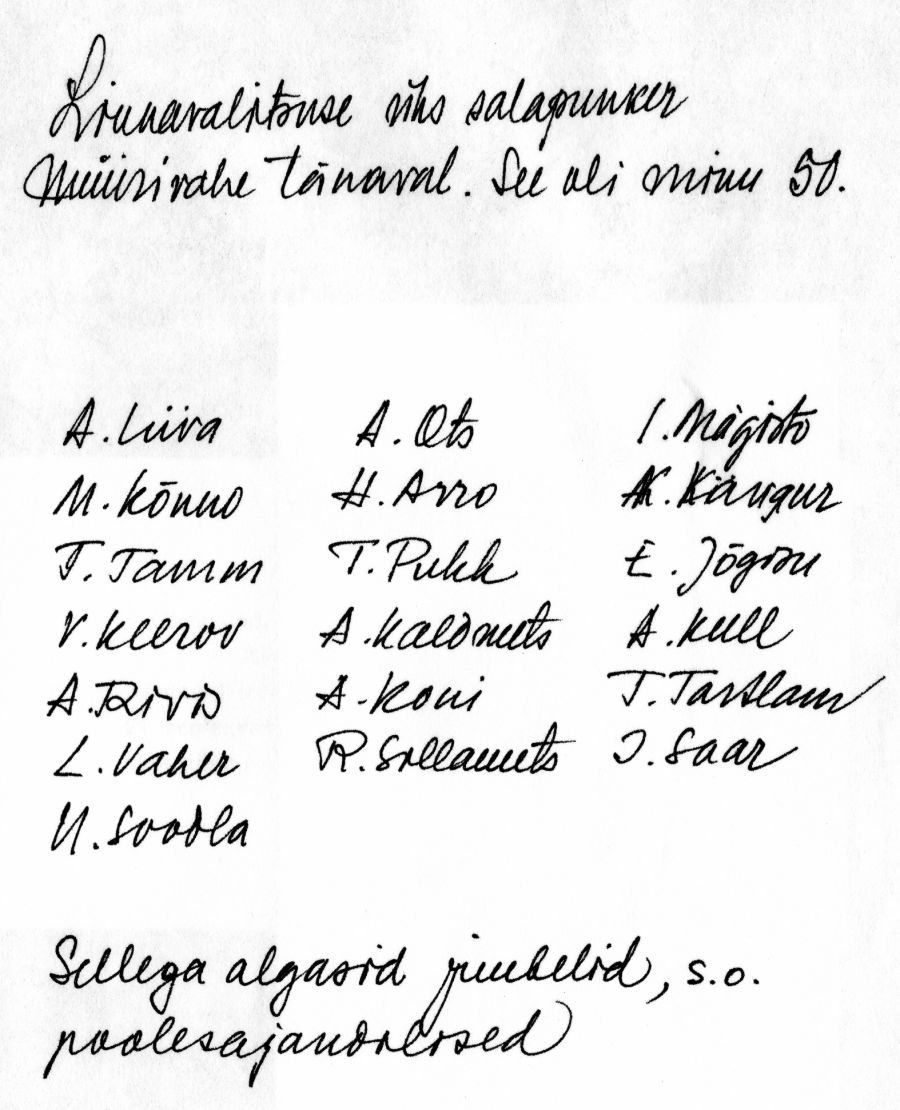 Linnavalitsuse üks salapunker
Müürivahe tänaval. See oli minu 50.
A. Liiva
M. Kõnno
T. Tamm
V. Keerov
A. Rivis
L. Vaher
U. Soodla
A. Ots
H. Arro
T. Pukk
A. Kaldmets
A. Koni
R. Sillamets
I. Mägisto
K. Kangur
E. Jõgisu
A. Kull
T. Tarslam
J. Saar
Sellega algasid juubelid, s.o.
poolesajandilised